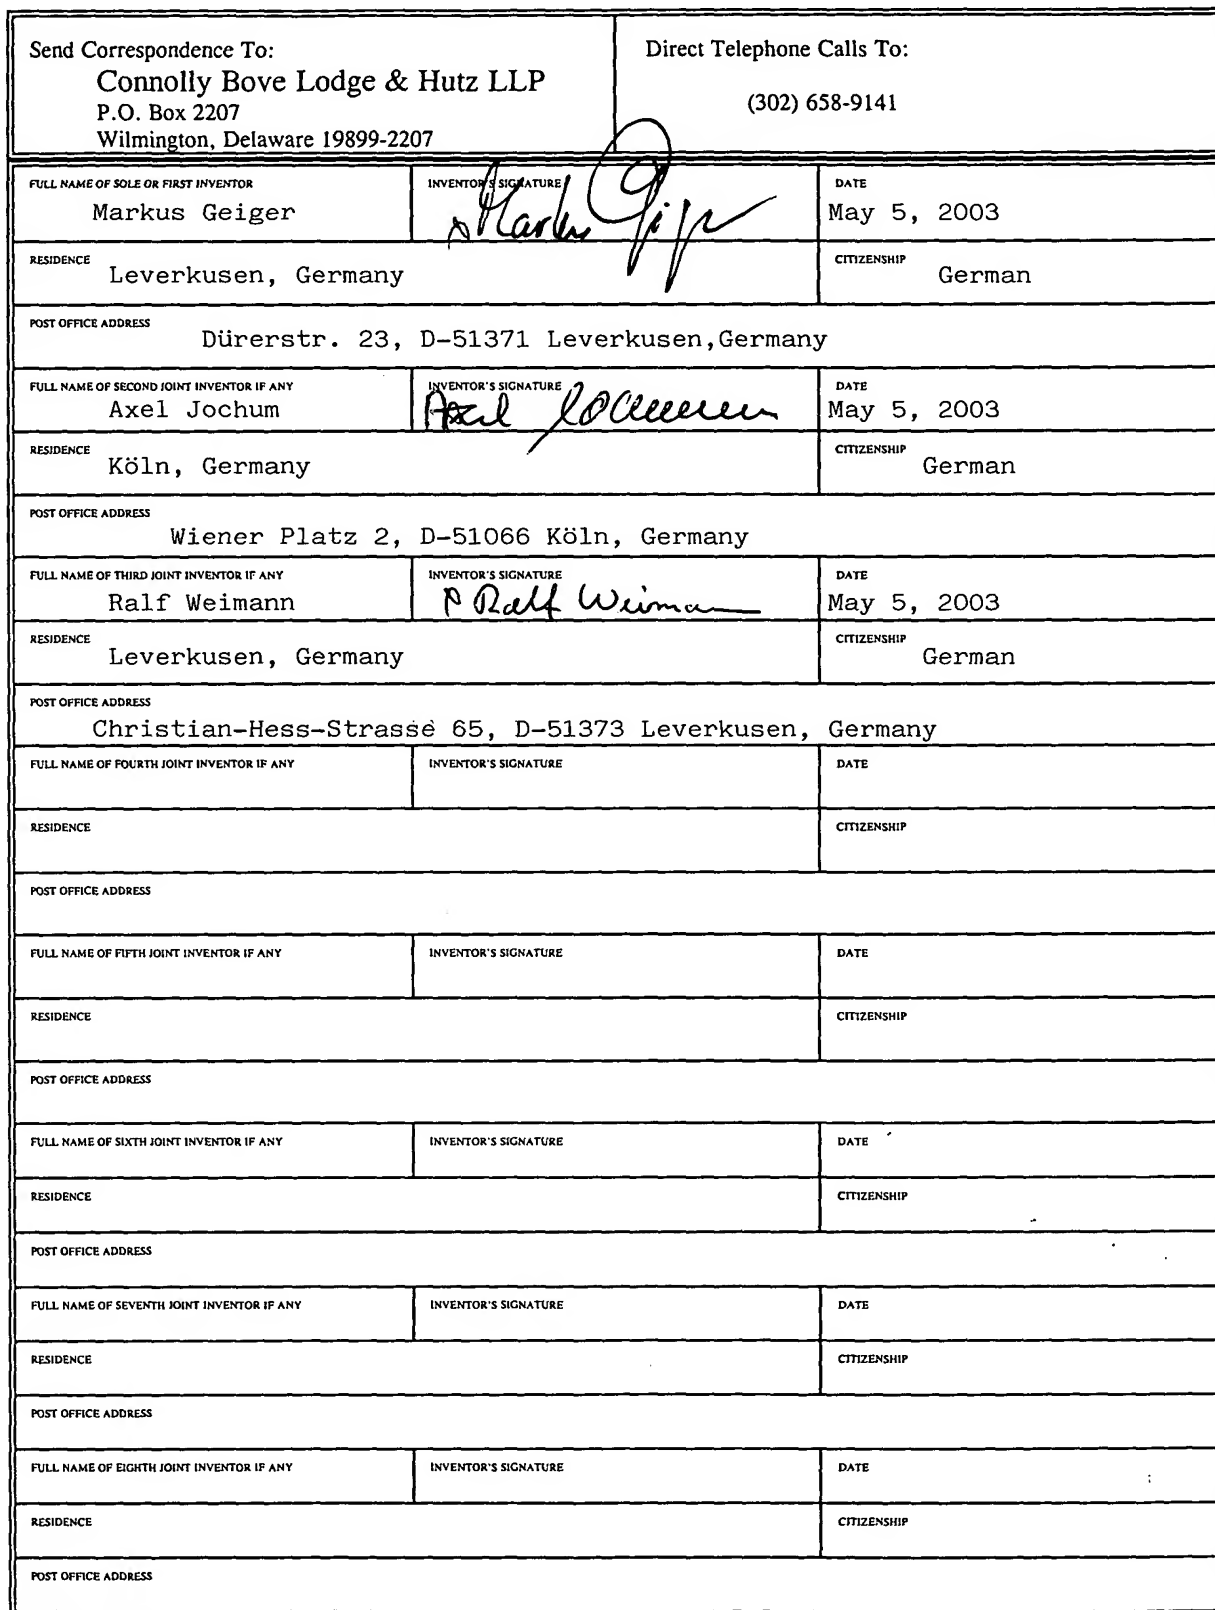 Send Correspondence To:
Connolly Bove Lodge & Hutz LLP
P.O. Box 2207
Wilmington, Delaware 19899-2207
Direct Telephone Calls To:
(302) 658-9141
FULL NAME OF SOLE OR FIRST INVENTOR INVENTOR'S SIGNATURE DATE
Markus Geiger Markus May 5, 2003
RESIDENCE CITIZENSHIP
Leverkusen, Germany German
POST OFFICE ADDRESS
Dürerstr. 23, D-51371 Leverkusen,Germany
FULL NAME OF SECOND JOINT INVENTOR IF ANY INVENTOR'S SIGNATURE DATE
Axel Jochum Axel Jochum May 5, 2003
RESIDENCE CITIZENSHIP
Köln, Germany German
POST OFFICE ADDRESS
Wiener Platz 2, D-51066 Köln, Germany
FULL NAME OF THIRD JOINT INVENTOR IF ANY INVENTOR'S SIGNATURE DATE
Ralf Weimann Ralf Weimann May 5, 2003
RESIDENCE CITIZENSHIP
Leverkusen, Germany German
POST OFFICE ADDRESS
Christian-Hess-Strasse 65, D-51373 Leverkusen, Germany
FULL NAME OF FOURTH JOINT INVENTOR IF ANY INVENTOR'S SIGNATURE DATE
RESIDENCE CITIZENSHIP
POST OFFICE ADDRESS
FULL NAME OF FIFTH JOINT INVENTOR IF ANY INVENTOR'S SIGNATURE DATE
RESIDENCE CITIZENSHIP
POST OFFICE ADDRESS
FULL NAME OF SIXTH JOINT INVENTOR IF ANY INVENTOR'S SIGNATURE DATE
RESIDENCE CITIZENSHIP
POST OFFICE ADDRESS
FULL NAME OF SEVENTH JOINT INVENTOR IF ANY INVENTOR'S SIGNATURE DATE
RESIDENCE CITIZENSHIP
POST OFFICE ADDRESS
FULL NAME OF EIGHTH JOINT INVENTOR IF ANY INVENTOR'S SIGNATURE DATE
RESIDENCE CITIZENSHIP
POST OFFICE ADDRESS